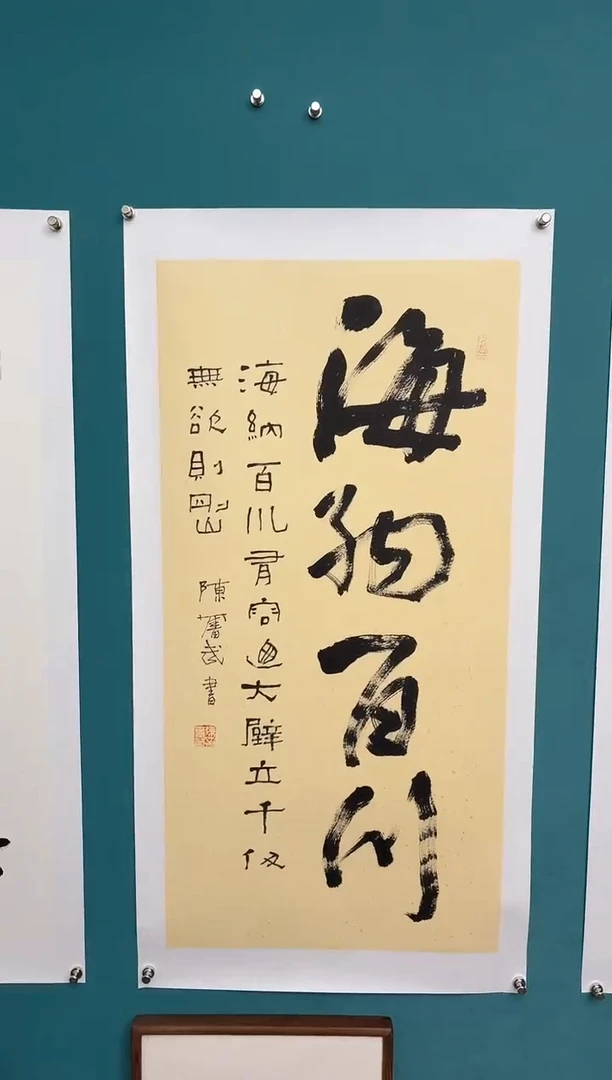 海納百川
海納百川有容迺大壁立千仞
無欲則剛 陳 武書